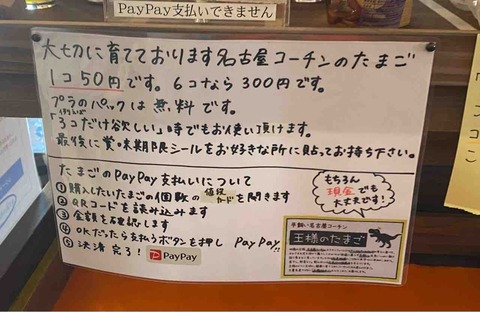 PayPay支払いできません
大切に育てております名古屋コーチンのたまご
1コ50円です。6コなら300円です。
プラのパックは無料です。
例えば
「3コだけ欲しい」時でもお使い頂けます。
最後に賞味期限シールをお好きな所に貼ってお持ち下さい。
たまごのPayPay支払いについて
①購入したいたまごの個数の値段カードを開きます
②QRコードを読み込みます
③金額を確認します
④OKだったら支払うボタンを押し PayPay!!
⑤決済完了! PayPay
もちろん
現金でも
大丈夫です!
平飼い名古屋コーチン
王様のたまご